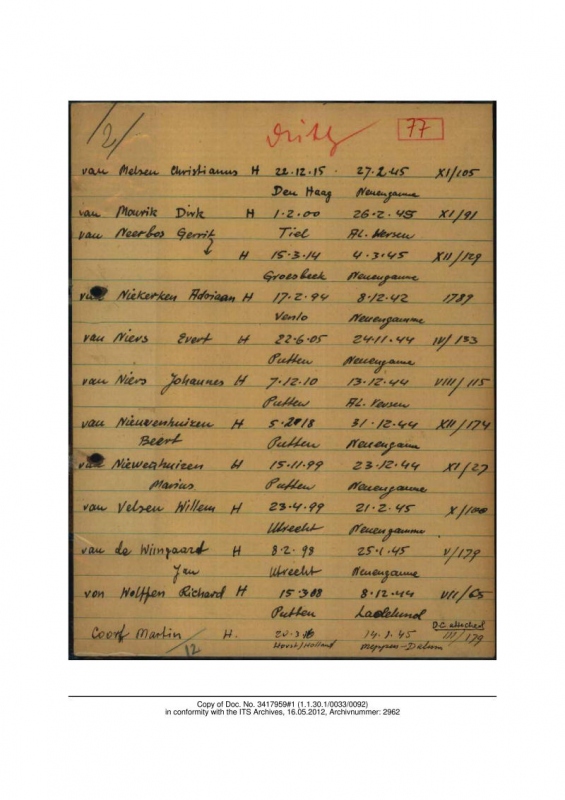 /2/
77
van Melsen Christianus H 22.12.15. 27.2.45 XI/105
Den Haag Neuengamme
van Mourik Dirk H 1.2.00 26.2.45 XI/91
van Neerbos Gerrit Tiel AL.
H 15.3.14 4.3.45 XII/129
Groesbeek Neuengamme
van Niekerken Adriaan H 17.2.94 8.12.42 1789
Venlo Neuengamme
van Niers Evert H 22.6.05 24.11.44 IV/133
Putten Neuengamme
van Niers Johannes H 7.12.10 13.12.44 VIII/115
Putten AL.
van Nieuwenhuizen H 5.2.18 31.12.44 XII/174
Beert Putten Neuengamm
van Niewenhuizen H 15.11.99 23.12.44 XI/27
Marius Putten Neuengamme
van Velsen Willem H 23.4.99 21.2.45 X/100
Utrecht Neuengamme
van de Wijngaard H 8.2.98 25.1.45 V/179
Jan Utrecht Neuengamme
von Wolffen Richard H 15.3.08 8.12.44 VII/65
Putten Ladelund
D.C. attached
Coorf Martin H. 14.1.45 III/179
Horst/Holland Meppen-Dalum
12
Copy of Doc. No. 3417959#1 (1.1.30.1/0033/0092)
in conformity with the ITS Archives, 16.05.2012, Archivnummer: 2962